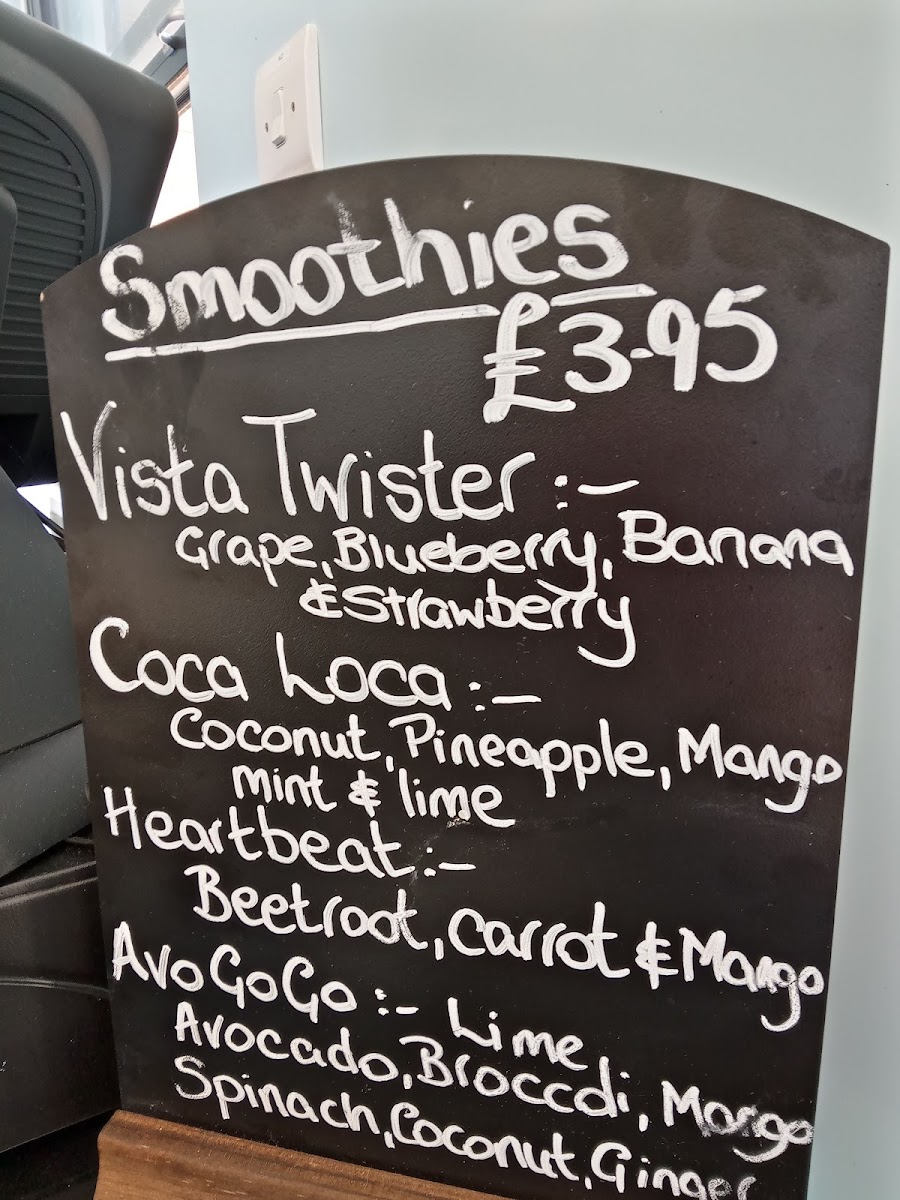 Smoothies
£3.95
Vista Twister :-
Grape, Blueberry, Banana
& Strawberry
Coca Loca :-
Coconut, Pineapple, Mango
mint & lime
Heartbeat :-
Beetroot, Carrot & Mango
AvoGoGo :- Lime
Avocado, Broccoli, Mango
Spinach, Coconut, Ginger